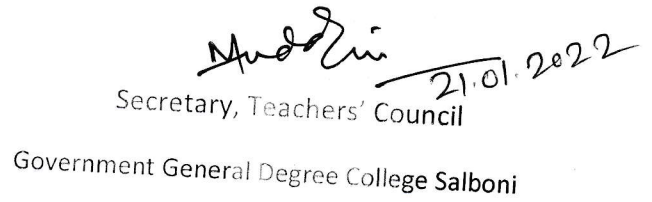 21.01.2022
Secretary, Teachers' Council
Government General Degree College Salboni